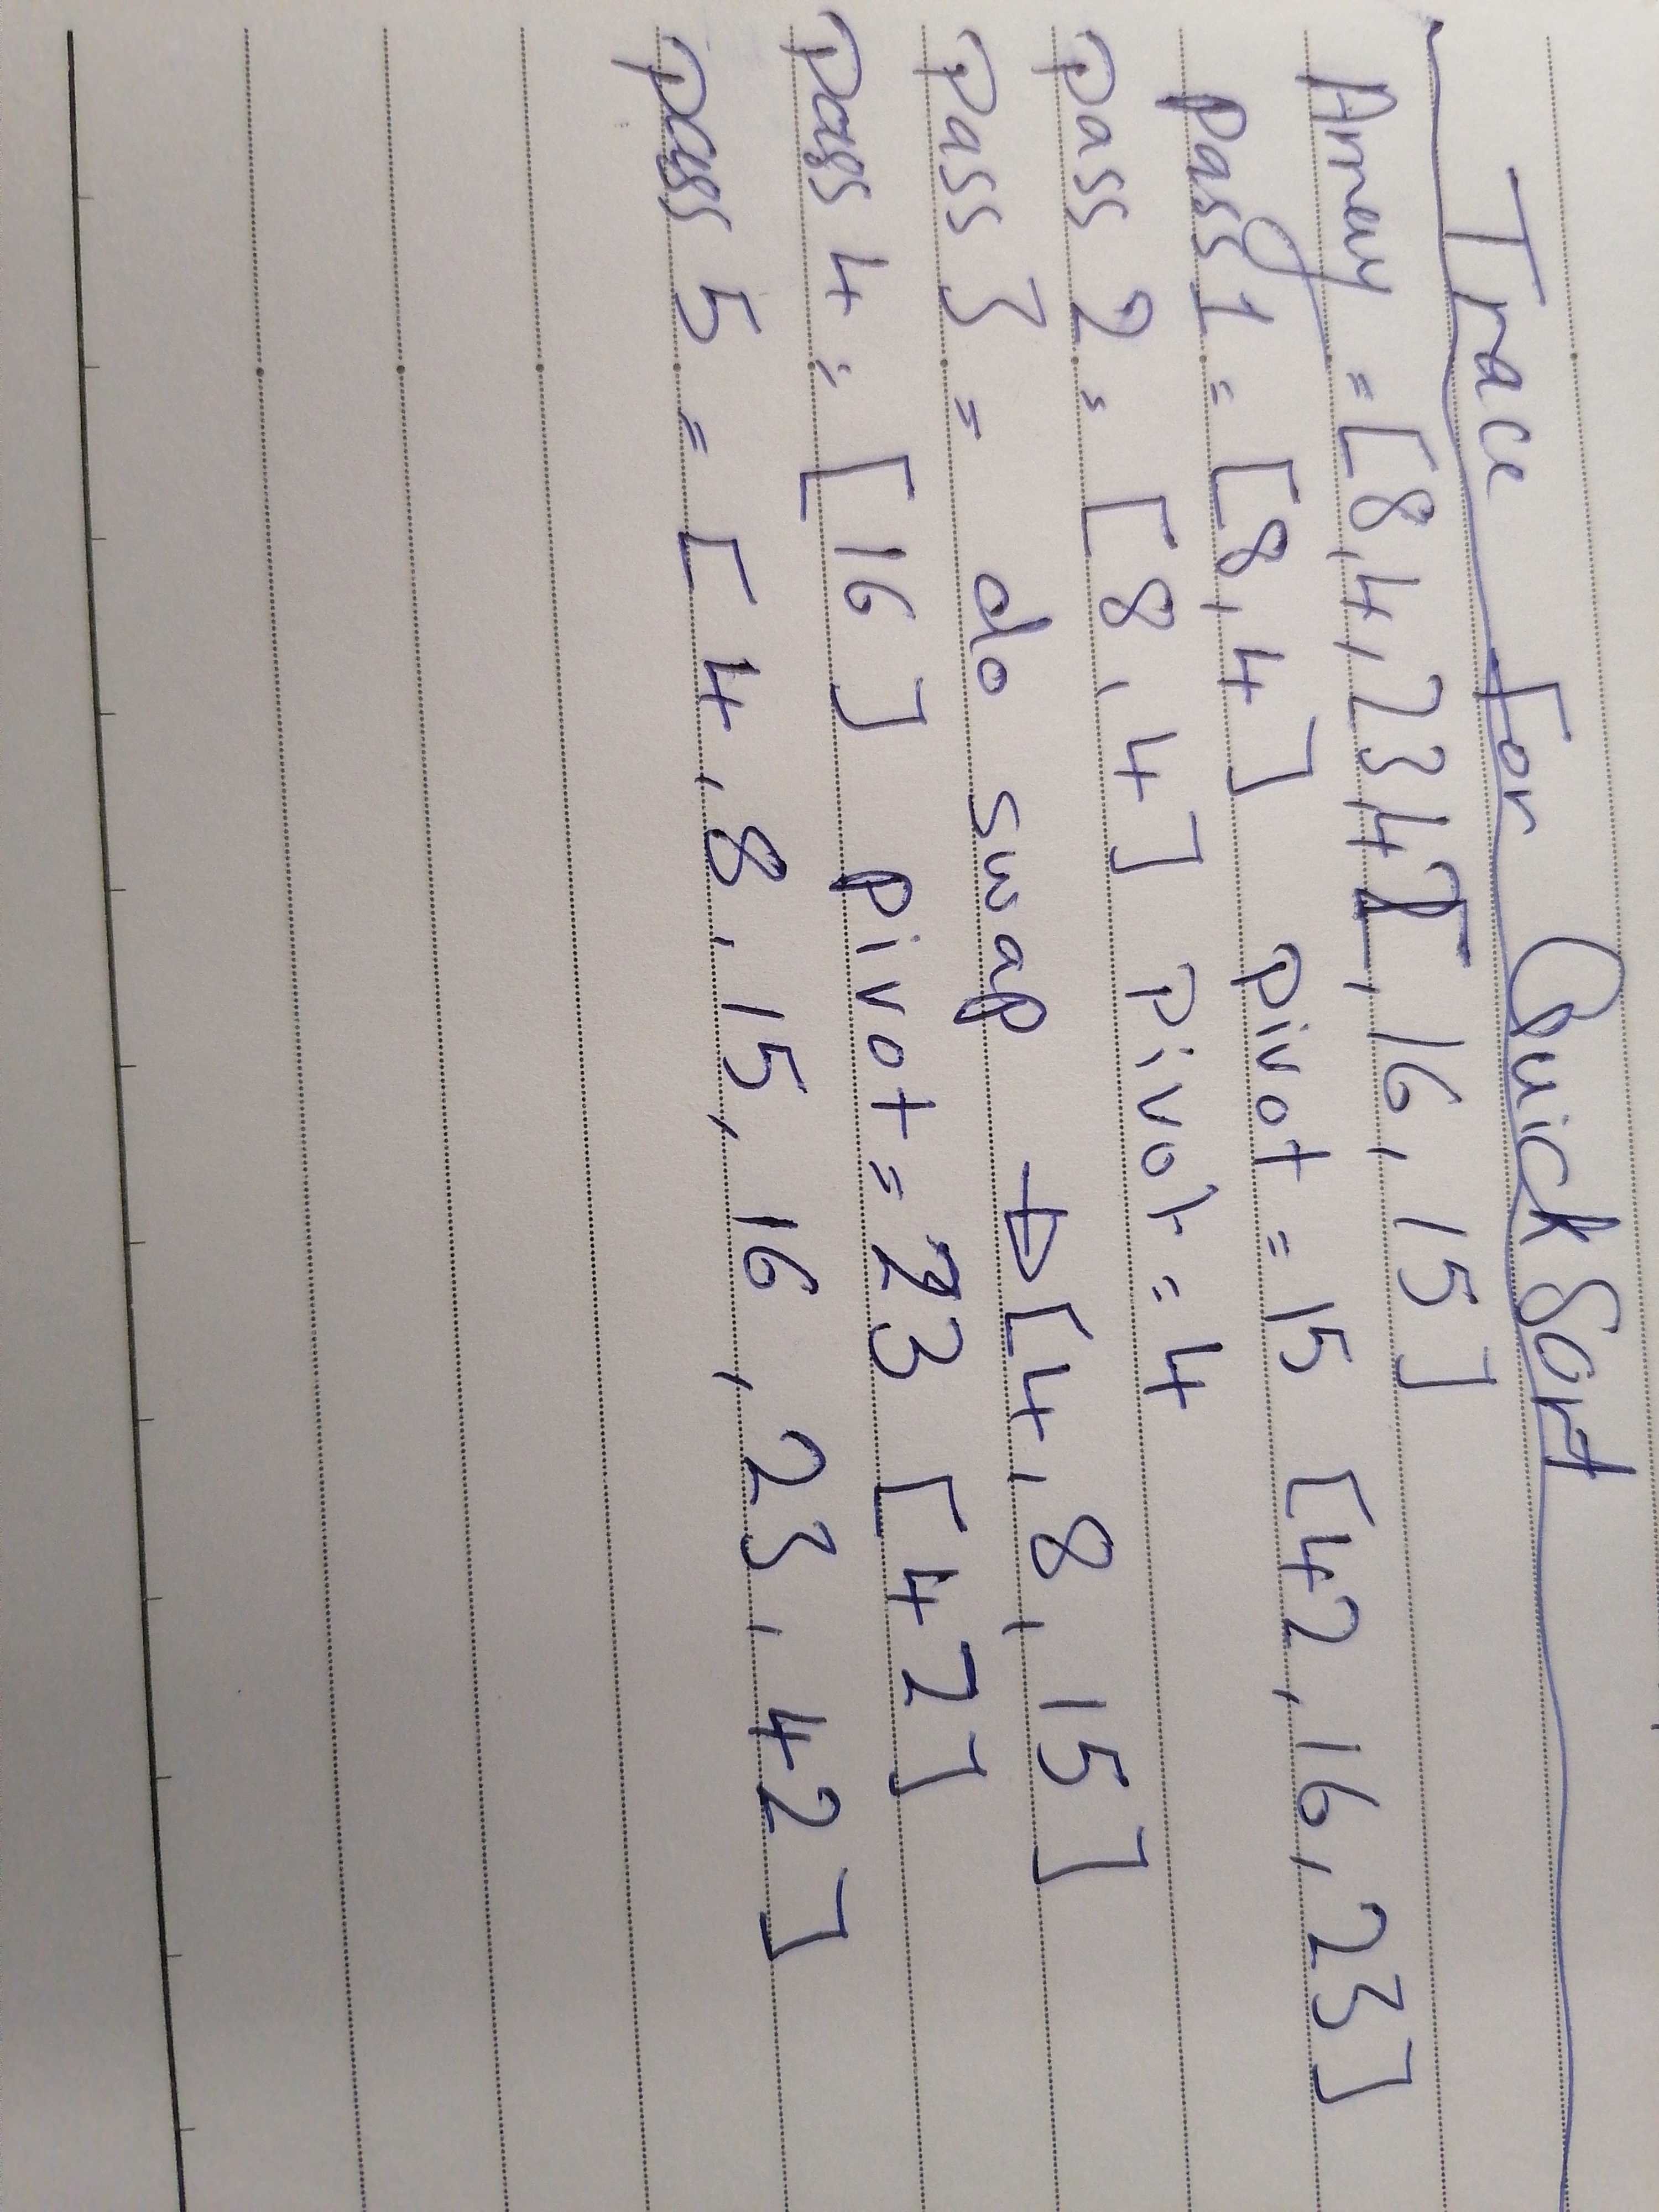 Trace For Quick Sort
Array = [8,4,23,42,16,15]
pass 1 = [8,4] pivot = 15 [42,16,23]
pass 2 = [8,4] pivot = 4
pass 3 = do swap → [4,8,15]
pass 4 = [16] pivot = 23 [42]
pass 5 = [4,8,15,16,23,42]